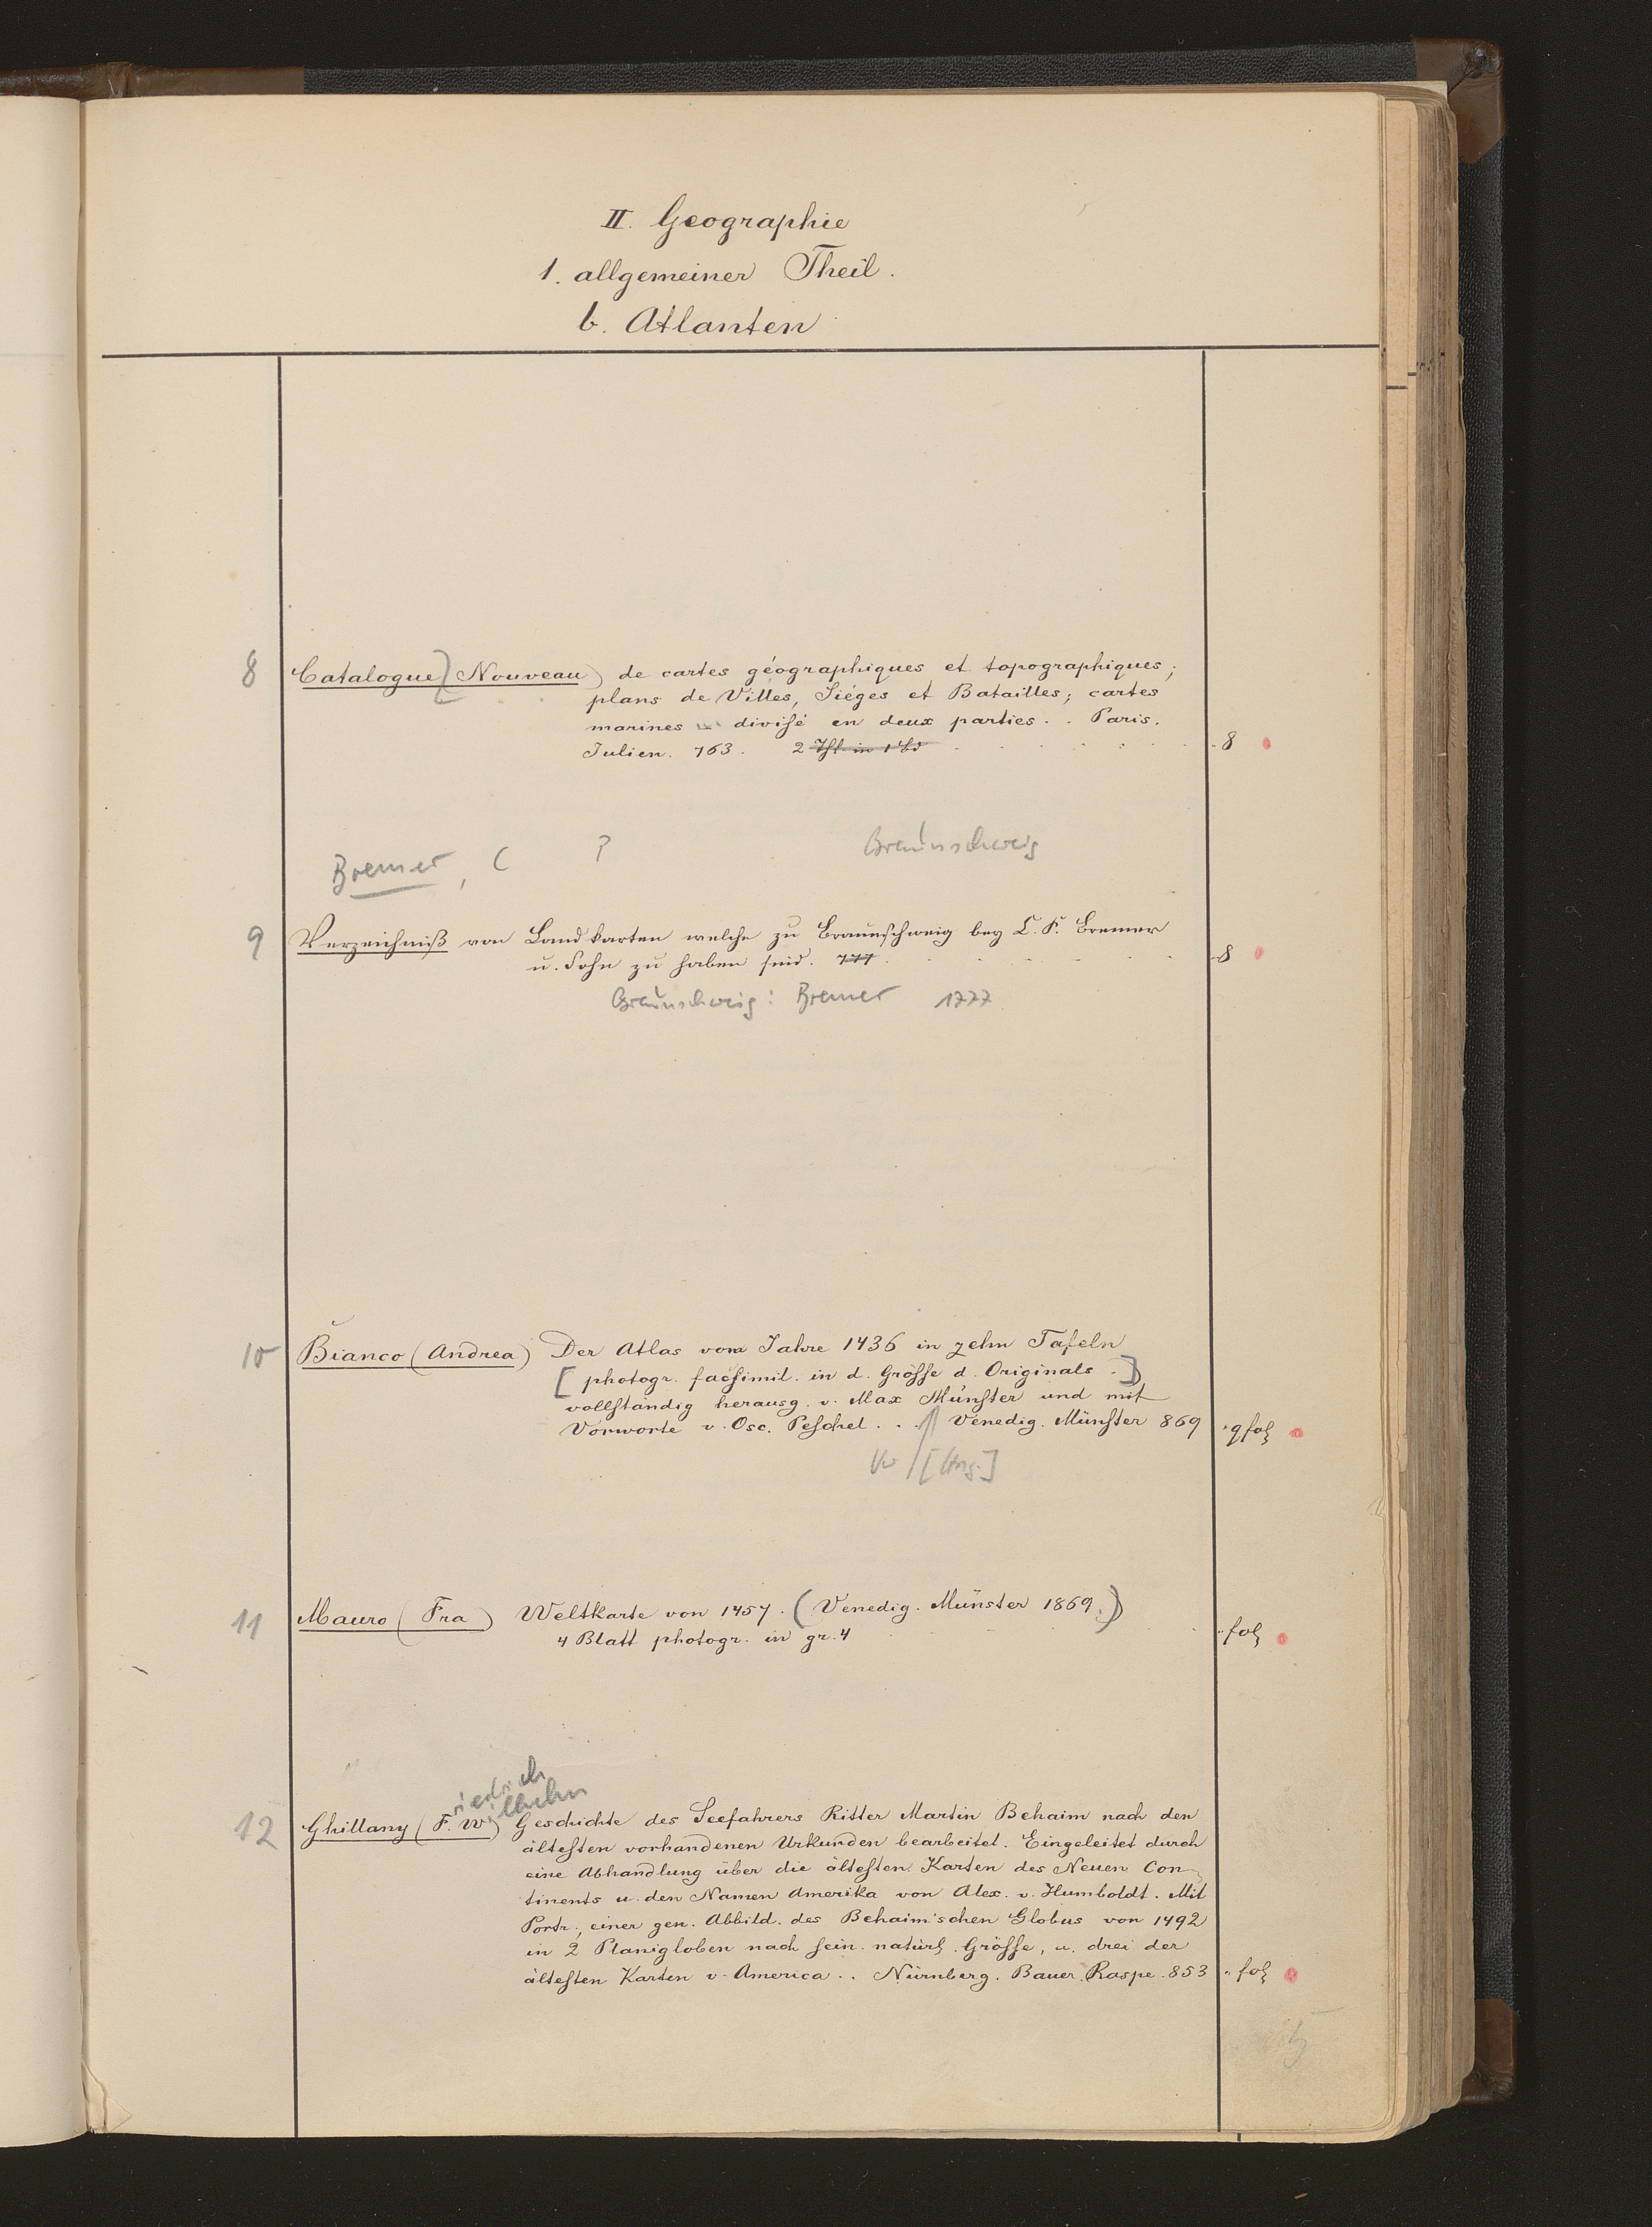 II. Geographie
1. allgemeiner Theil.
b. Atlanten
8 Catalogue [(Nouveau) de cartes géographiques et topographiques;
plans de Villes, Siéges et Batailles; cartes
marines divisé en deux parties. . Paris.
Julien. 763. 2 Thl in 1 Bd 8
Bremer, C ? Braunschweig
9 Verzeichniß von Landkarten welche zu Braunschweig bey C. F. Bremer
u. Sohn zu haben sind. 777. 8
Braunschweig: Bremer 1777
10 Bianco (Andrea) Der Atlas vom Jahre 1436 in zehn Tafeln
[photogr. facsimil. in d. Grösse d. Originals.]
vollständig herausg. v. Max Münster und mit
Vorworte v. Osc. Peschel . . . Venedig. Münster 869 qfol
[Hrsg.]
11 Mauro (Fra) Weltkarte von 1457. (Venedig. Münster 1869.)
4 Blatt photogr. in gr. 4 fol
riedrich
ilhelm
12 Ghillany (F. W) Geschichte des Seefahrers Ritter Martin Behaim nach den
ältesten vorhandenen Urkunden bearbeitet. Eingeleitet durch
eine Abhandlung über die ältesten Karten des Neuen Con-
tinents u. den Namen Amerika von Alex. v. Humboldt. Mit
Portr., einer gen. Abbild. des Behaim'schen Globus von 1492
in 2 Planigloben nach sein. natürl. Grösse, u. drei der
ältesten Karten v. America . . Nürnberg. Bauer. Raspe. 853 fol
5